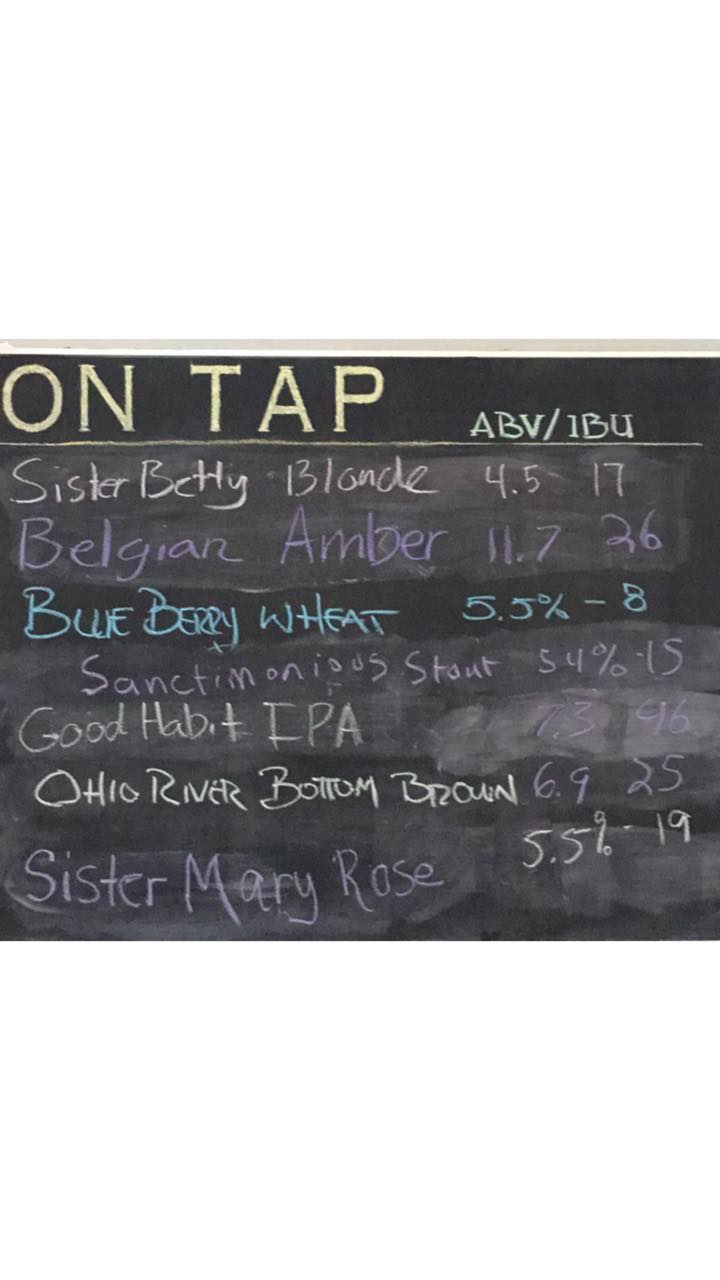 ON TAP ABV/IBU
Sister Betty Blonde 4.5 17
Belgian Amber 11.7 26
BLUE BERRY WHEAT 5.5% - 8
Sanctimonious Stout 5.4% - 15
Good Habit IPA 7.3 96
OHIO RIVER BOTTOM BROWN 6.9 25
Sister Mary Rose 5.5% - 19